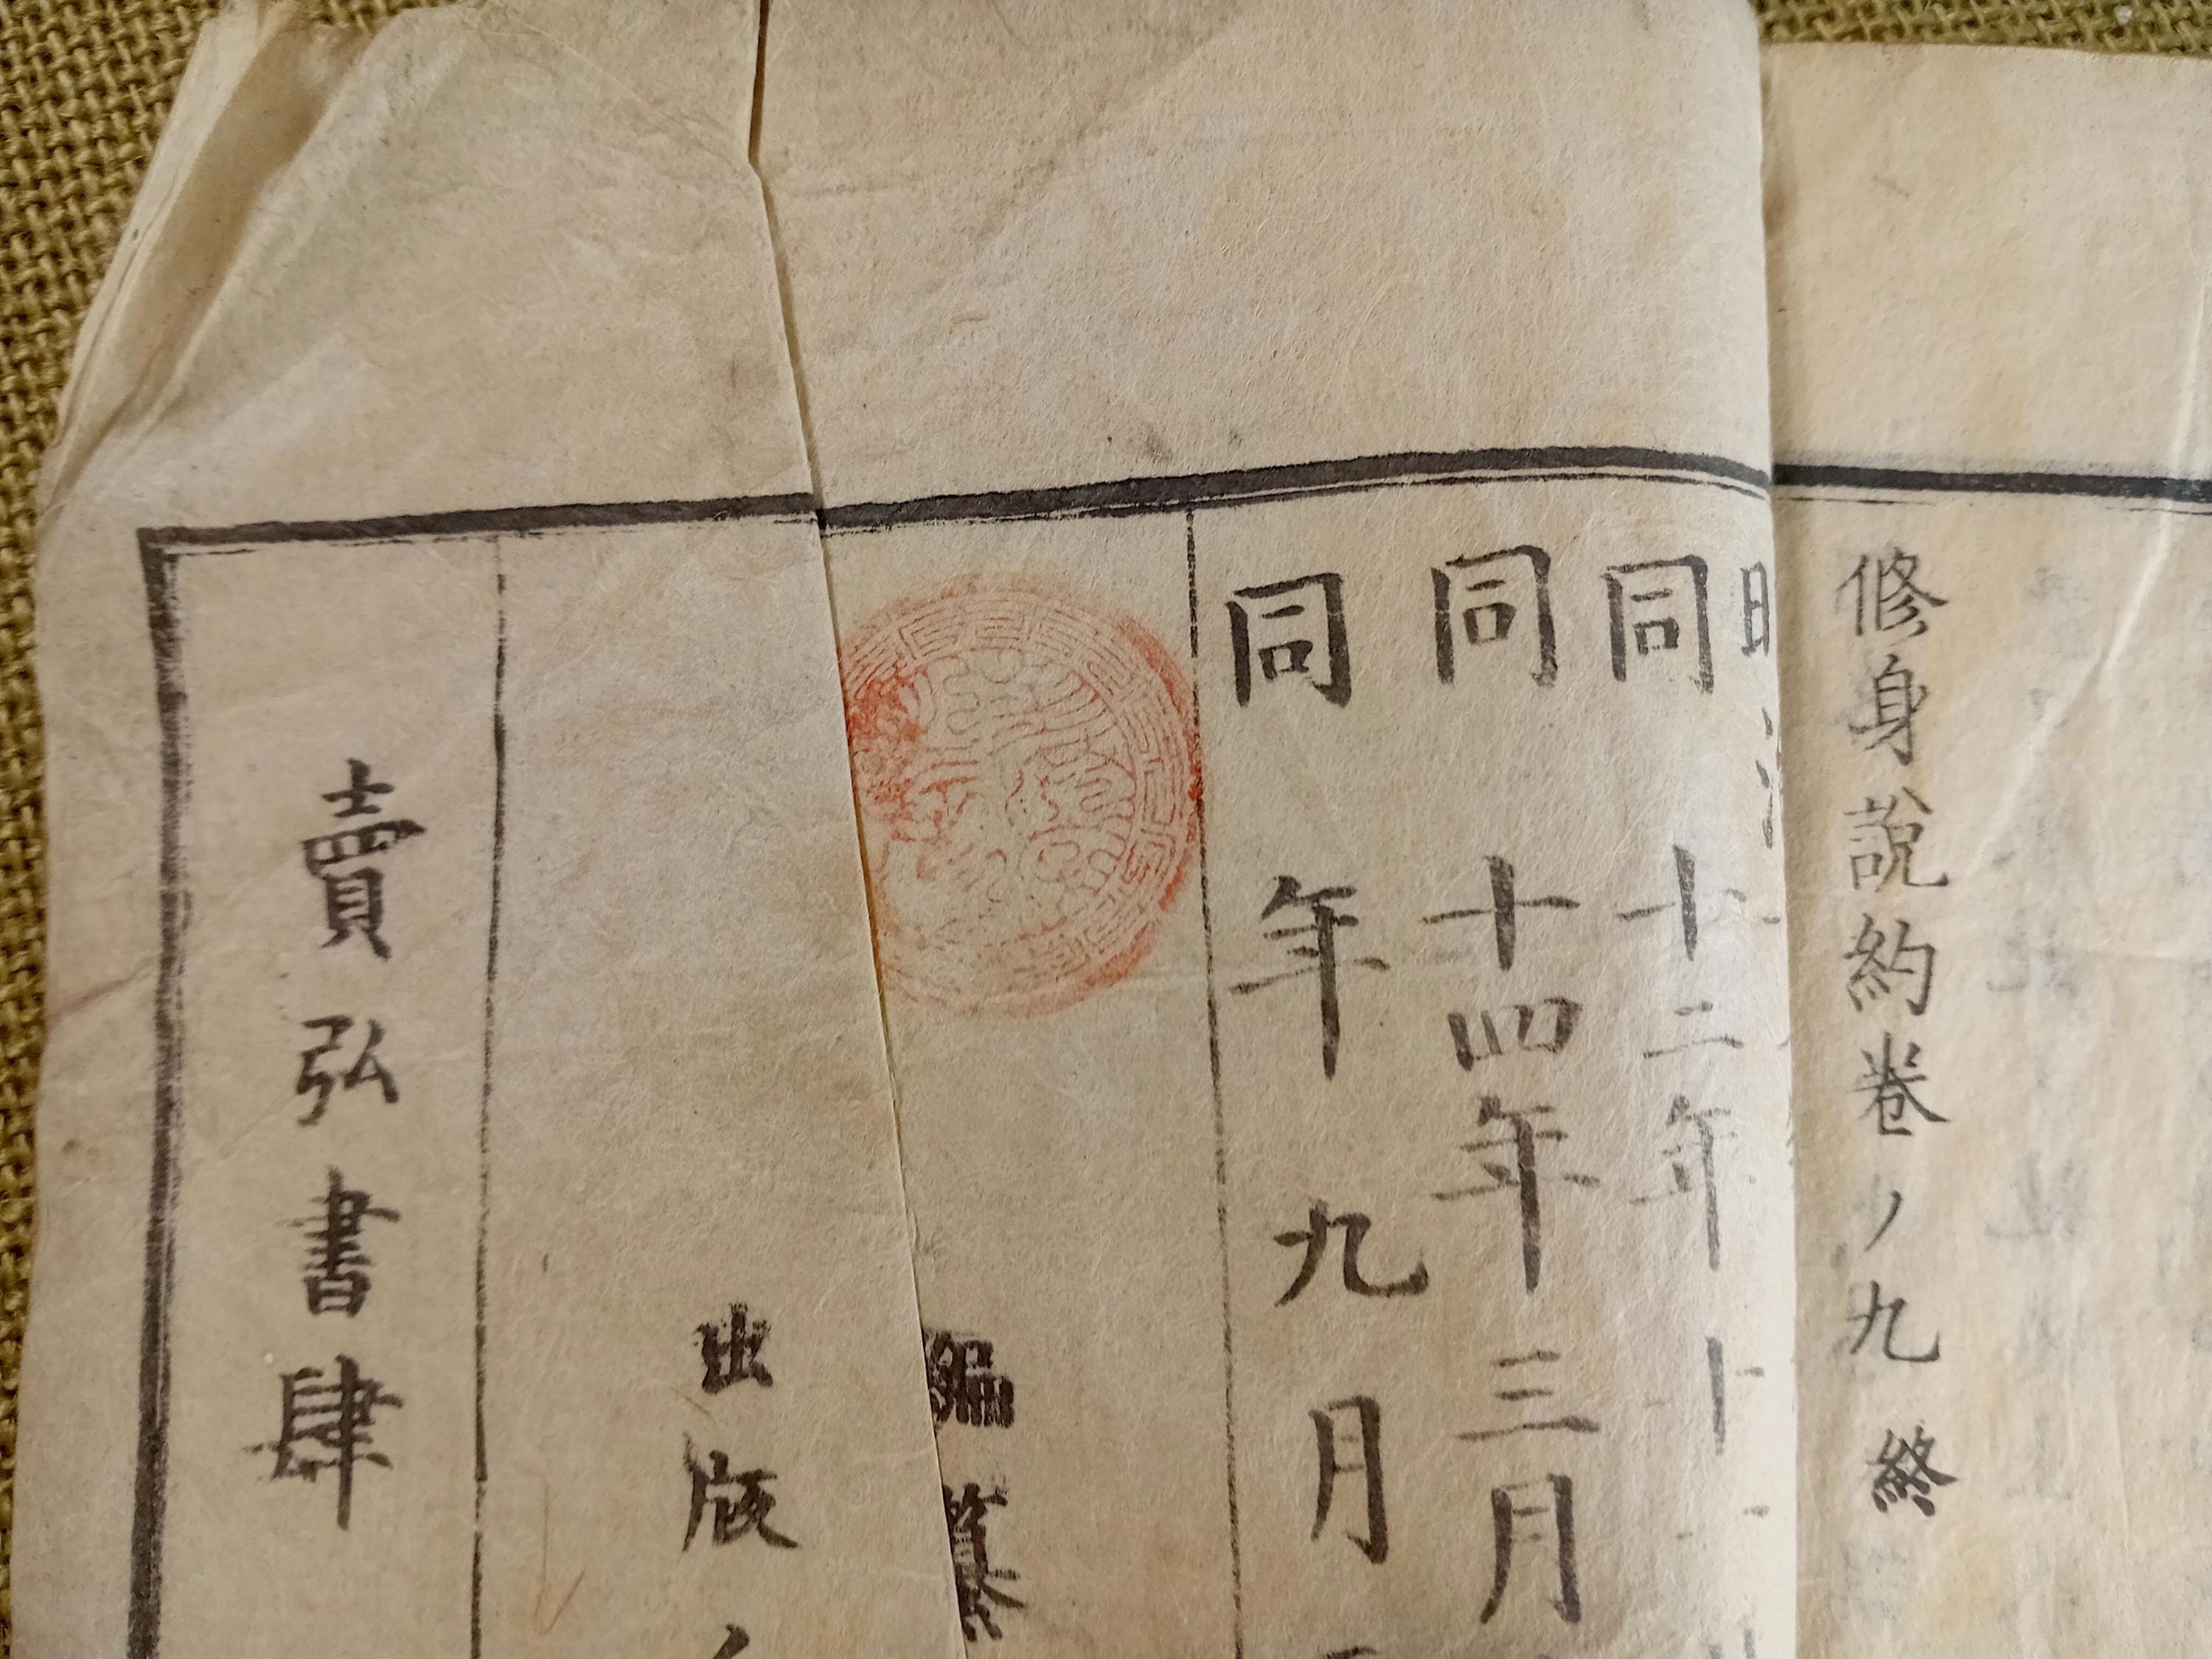 修身說約卷ノ九終
同十二年十
同十四年三月
同年九月
編纂
出版
賣弘書肆